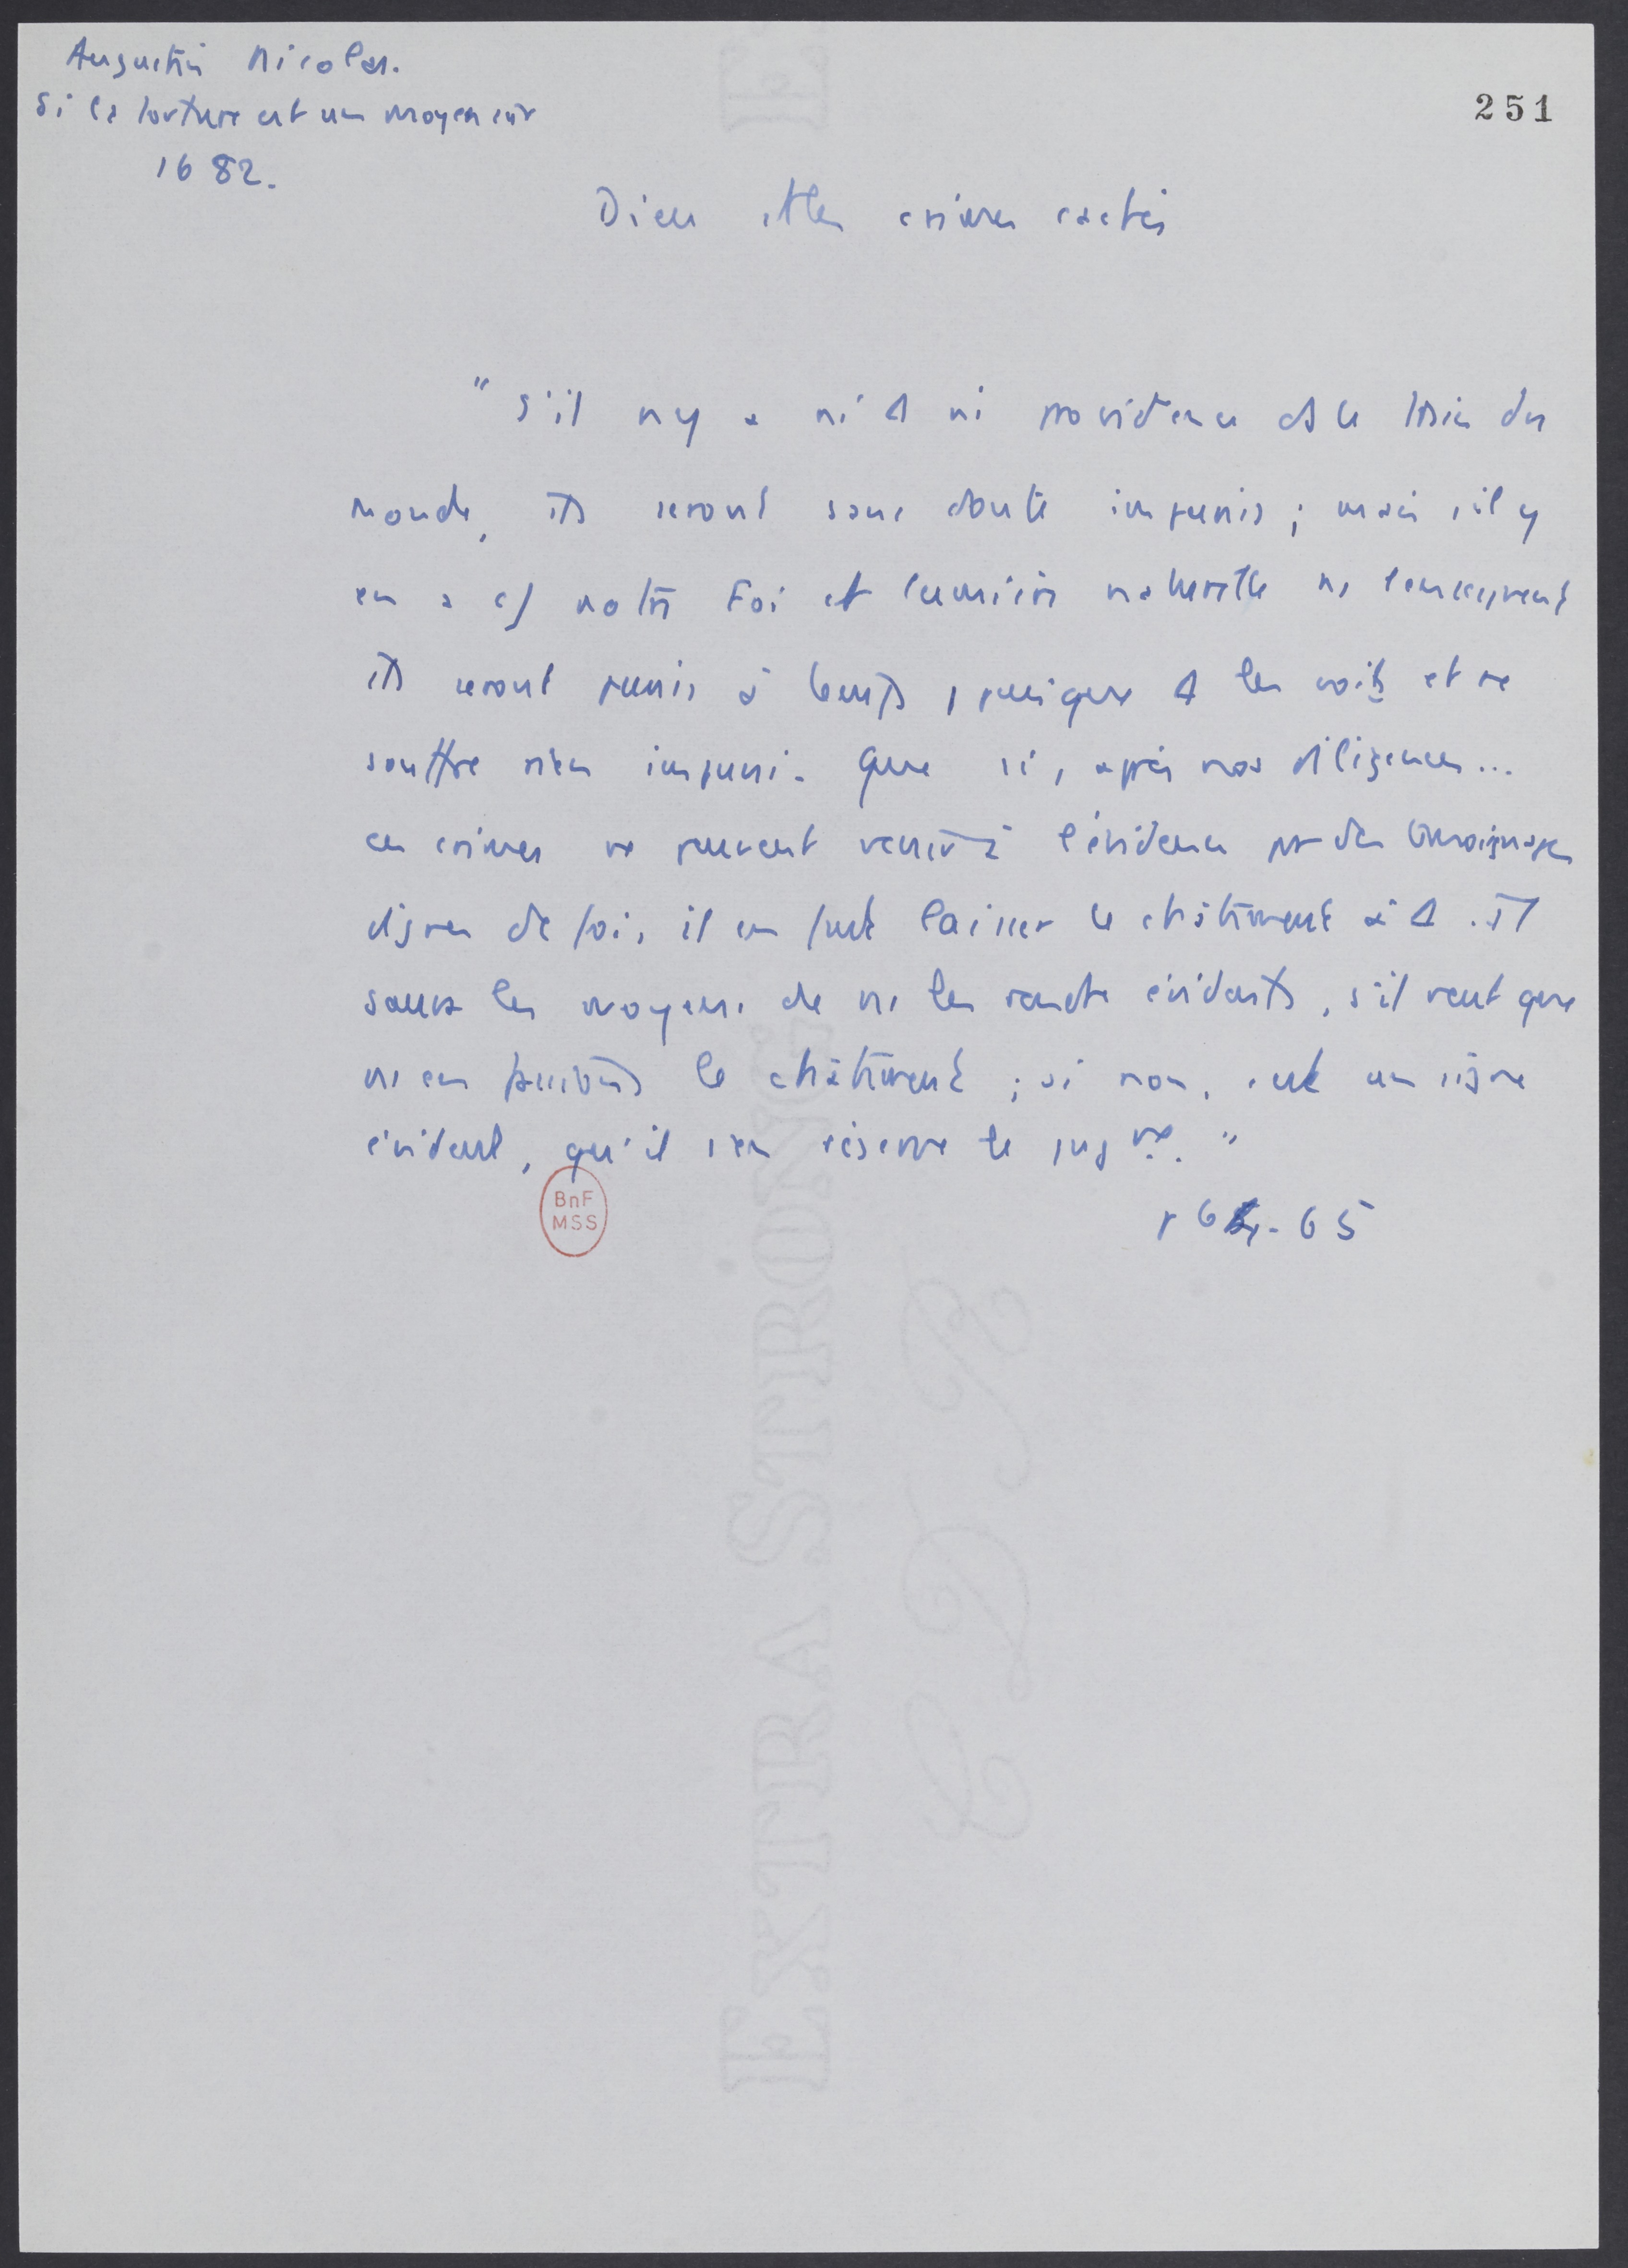 Augustin Nicolas.
Si la torture est un moyen sûr
1682.
251
Dieu et les crimes cachés
"S'il n'y a ni Δ ni providence ds le train du
monde, ils seront sans doute impunis ; mais s'il y
en a cô notre Foi et lumière naturelle ns l'enseignent
ils seront punis à temps, puisque Δ les voit et ne
souffre rien impuni. Que si, après nos diligences...
ces crimes ne peuvent venir à l'évidence par des témoignages
dignes de foi, il en faut laisser le châtiment à Δ. Il
saura les moyens de ns les rendre évidents, s'il veut que
ns en fassions le châtiment ; si non, c'est un signe
évident, qu'il s'en réserve le jugnt."
BnF
MSS
p 64-65
EXTRA STRONG